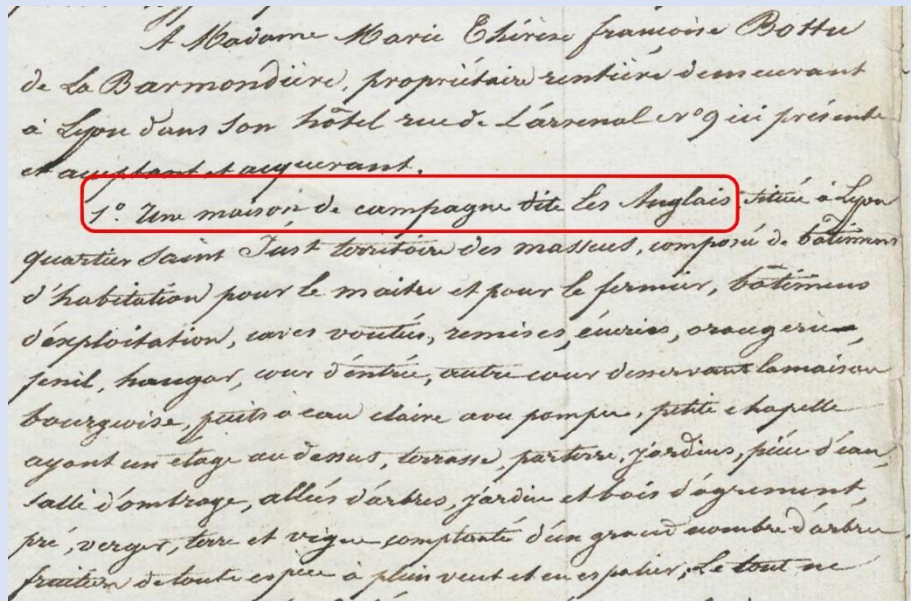 A Madame Marie Thérèse françoise Bottu
de La Barmondière, propriétaire rentière demeurant
à Lyon dans son hôtel rue de L'arsenal n° 9 ici présente
et acceptant et acquerant.
1° Une maison de campagne dite Les Anglais située à Lyon
quartier saint Just territoire des massues, composé de bâtimens
d'habitation pour le maitre et pour le fermier, bâtimens
d'exploitation, caves voutés, remises, écuries, orangerie
fenil, hangar, cour d'éntrée, autre cour desservant la maison
bourgeoise, puits à eau claire avec pompe, petite chapelle
ayant un etage au dessus, terrasse, parterre, jardins, pièce d'eau,
salle d'ombrage, allées d'arbres, jardin et bois d'agrement,
pré, verger, terre et vigne complanté d'un grand nombre d'arbre
fruitier de toute espèce à plein vent et en espalier; Le tout ne